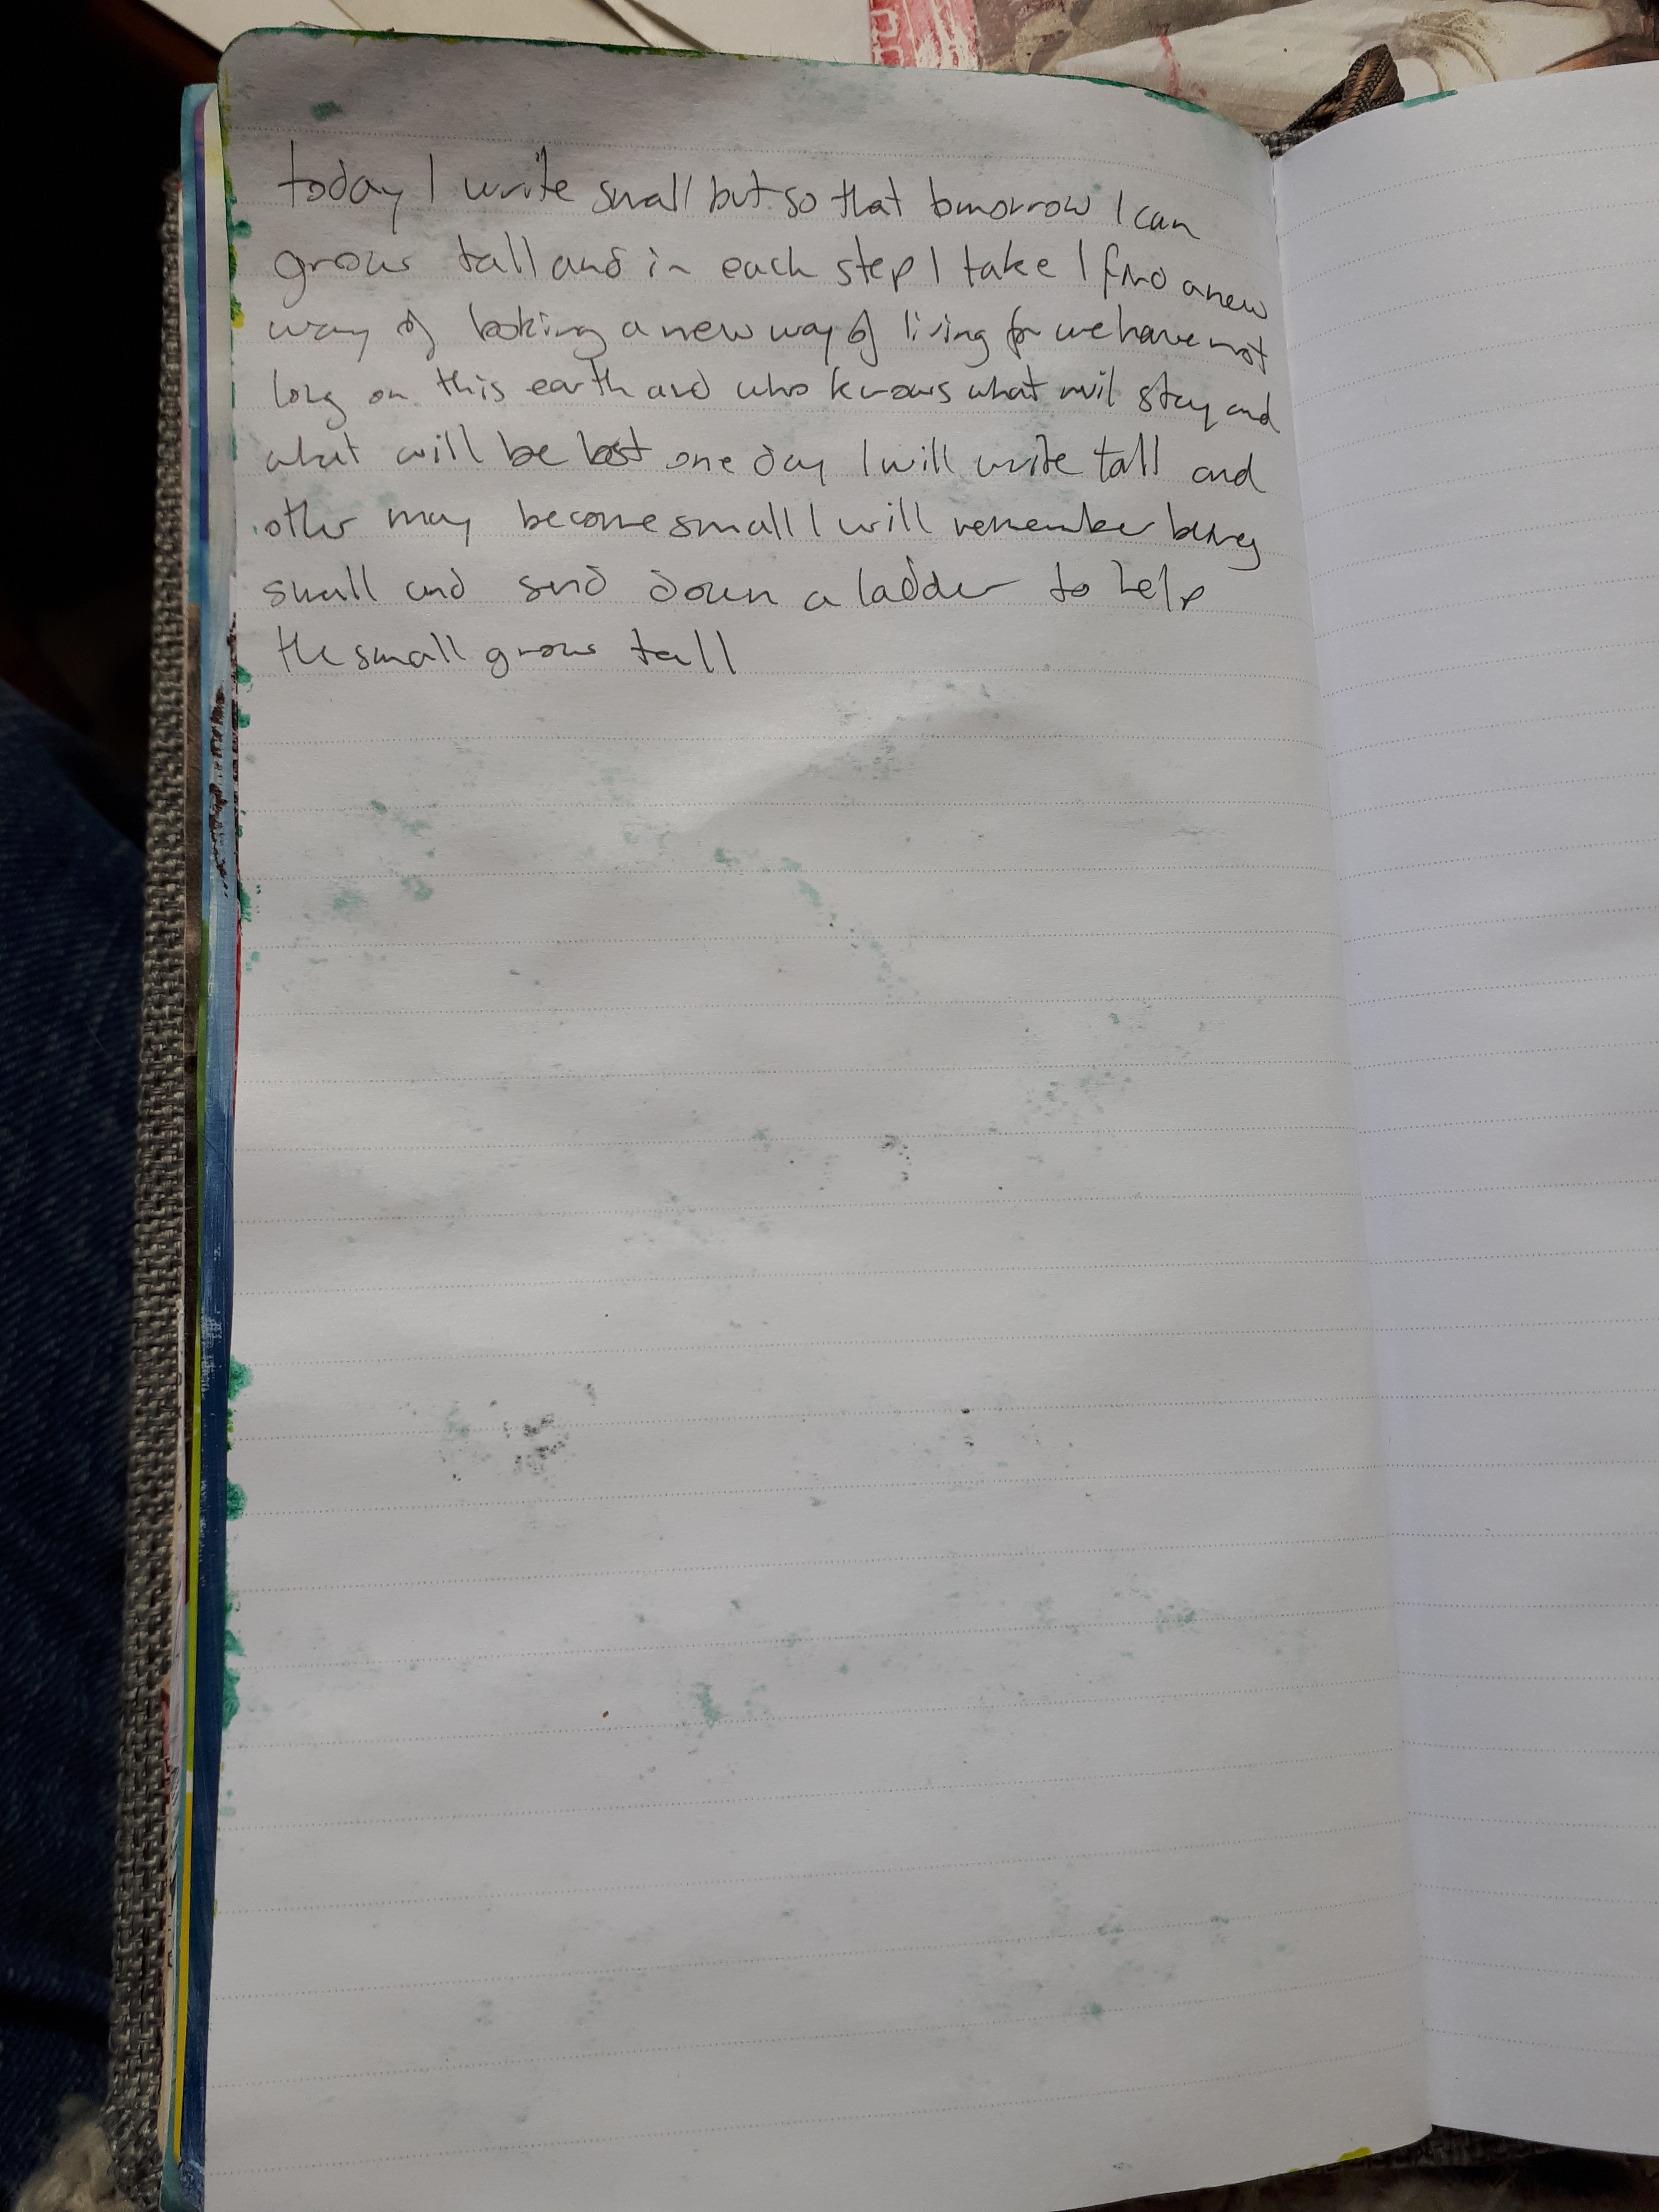 today I write small but so that tomorrow I can
grow tall and in each step I take I find a new
way of looking a new way of living for we have not
long on this earth and who knows what will stay and
what will be lost one day I will write tall and
other may become small I will remember being
small and send down a ladder to help
the small grow tall